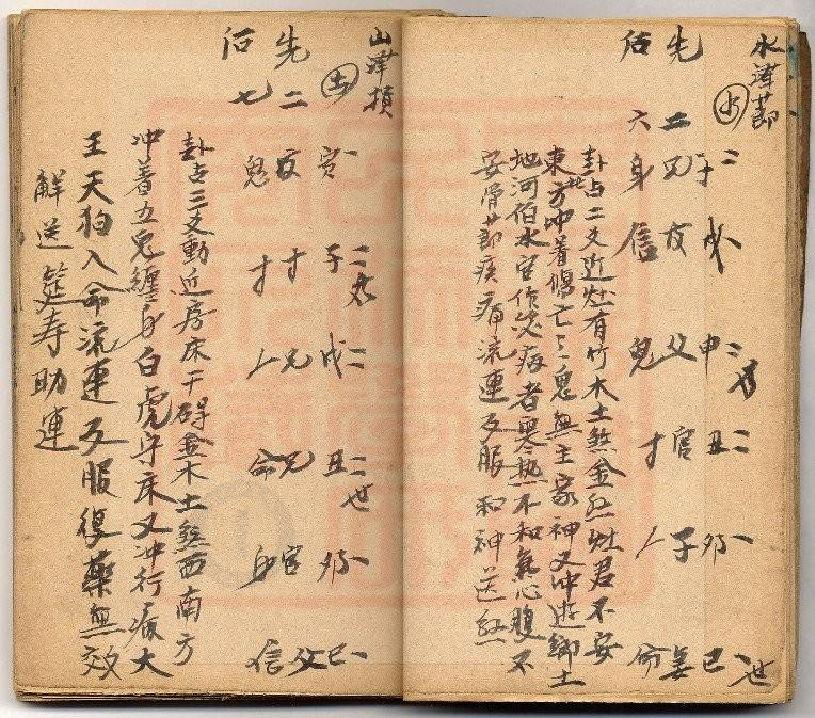 水澤節
子 戌 申 丑 卯 巳 世
先 二 兄 父 官 子
后 六 身 信 鬼 才 人 命
卦占二爻近灶有竹木土煞金 灶君不安
東北方冲着傷亡之鬼無主家神又冲遊鄉土
地河伯水官作災病者寒熱不和氣心腹不
安骨節疾痛流連反服和神送煞
山澤損
寅 子 戌 丑 世 卯 巳
先 二 才 兄 兄 官 父
后 七 鬼 才 人 命 身 信
卦占三爻動近房床干碍金木土煞西南方
冲着五鬼纏身白虎守床又冲行瘟大
王天狗入命流連反服得藥無效
解送筵寿助運